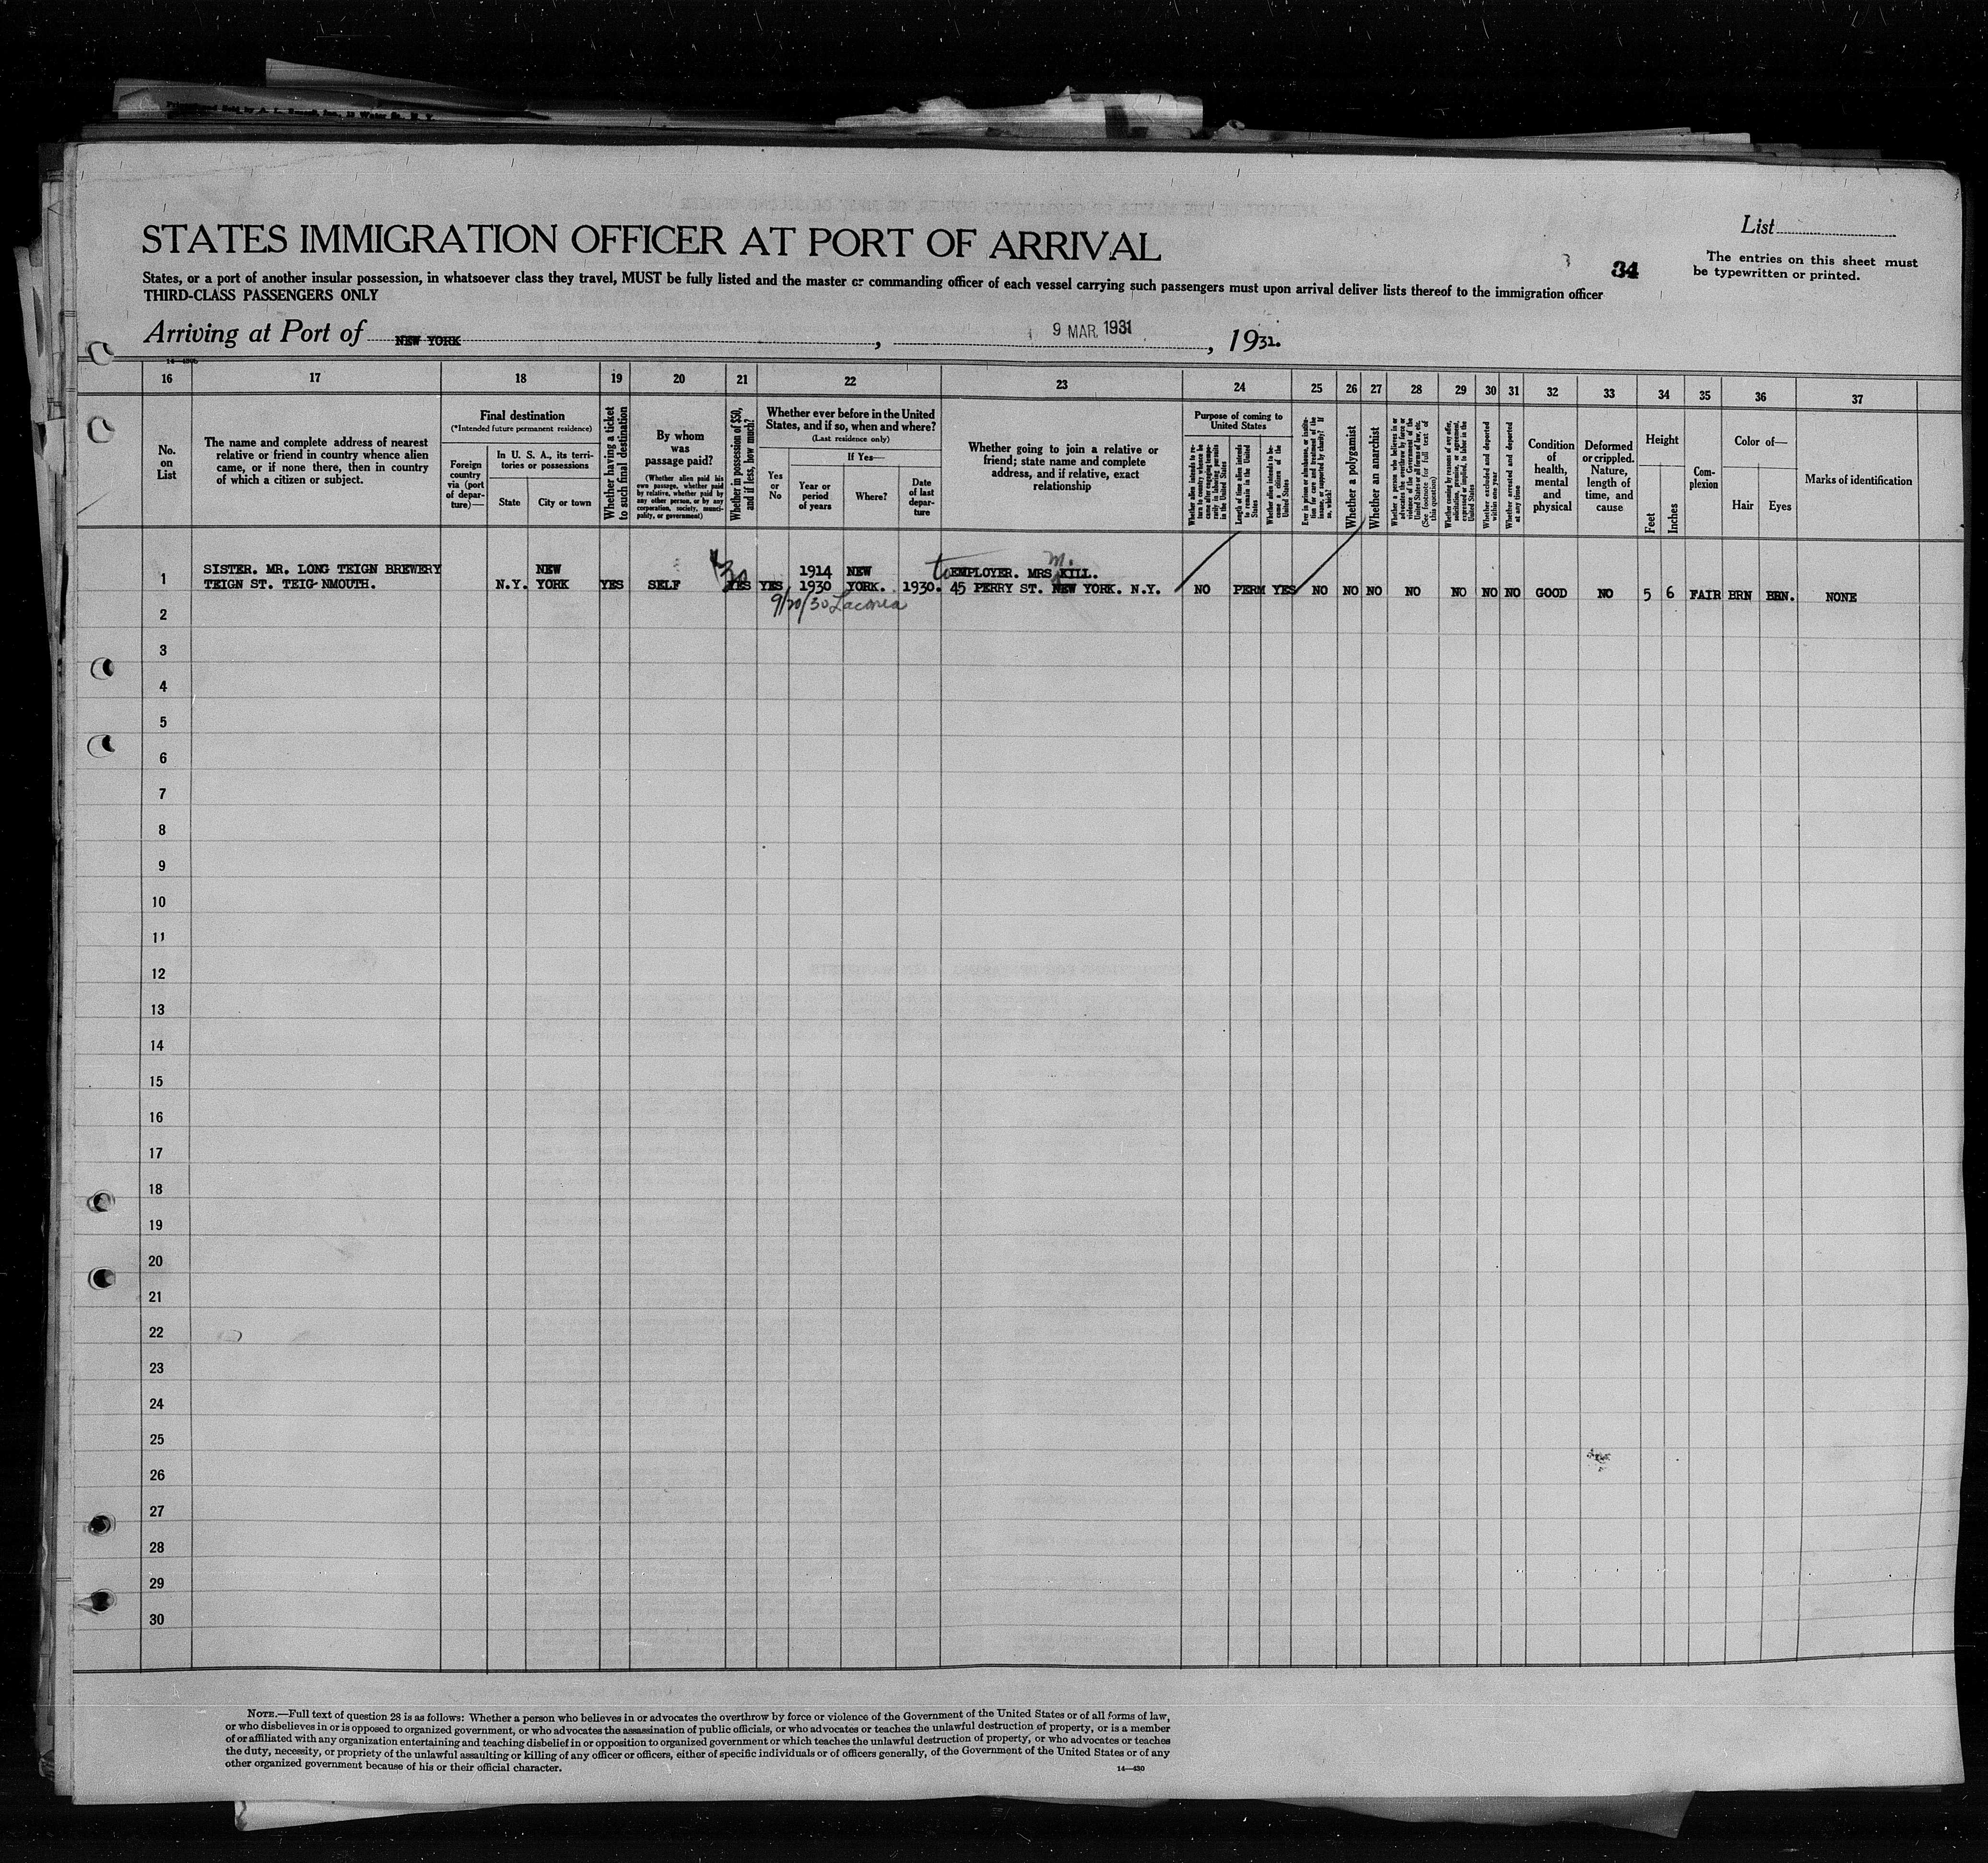 STATES IMMIGRATION OFFICER AT PORT OF ARRIVAL
List
34
The entries on this sheet must
be typewritten or printed.
States, or a port of another insular possession, in whatsoever class they travel, MUST be fully listed and the master or commanding officer of each vessel carrying such passengers must upon arrival deliver lists thereof to the immigration officer
THIRD-CLASS PASSENGERS ONLY
Arriving at Port of NEW YORK, 9 MAR. 1931, 1931.
16 17 18 19 20 21 22 23 24 25 26 27 28 29 30 31 32 33 34 35 36 37
No.
on
List
The name and complete address of nearest
relative or friend in country whence alien
came, or if none there, then in country
of which a citizen or subject.
Final destination
(*Intended future permanent residence)
Foreign
country
via (port
of depar-
ture)—
In U. S. A., its terri-
tories or possessions
State
City or town
Whether having a ticket
to such final destination
By whom
was
passage paid?
(Whether alien paid his
own passage, whether paid
by relative, whether paid by
any other person, or by any
corporation, society, munici-
pality, or government)
Whether in possession of $50,
and if less, how much?
Whether ever before in the United
States, and if so, when and where?
(Last residence only)
Yes
or
No
If Yes—
Year or
period
of years
Where?
Date
of last
depar-
ture
Whether going to join a relative or
friend; state name and complete
address, and if relative, exact
relationship
Purpose of coming to
United States
Whether alien intends to re-
turn to country whence he
came after engaging tempo-
rarily in laboring pursuits
in the United States
Length of time alien intends
to remain in the United
States
Whether alien intends to be-
come a citizen of the
United States
Ever in prison or almshouse, or institu-
tion for care and treatment of the
insane, or supported by charity? If
so, which?
Whether a polygamist
Whether an anarchist
Whether a person who believes in or
advocates the overthrow by force or
violence of the Government of the
United States or all forms of law, etc.
(See footnote for full text of
this question)
Whether coming by reasons of any offer,
solicitation, promise, or agreement,
expressed or implied, to labor in the
United States
Whether excluded and deported
within one year
Whether arrested and deported
at any time
Condition
of
health,
mental
and
physical
Deformed
or crippled.
Nature,
length of
time, and
cause
Height
Feet
Inches
Com-
plexion
Color of—
Hair
Eyes
Marks of identification
SISTER. MR. LONG TEIGN BREWERY NEW 1914 NEW to EMPLOYER. MRS M. KILL.
1 TEIGN ST. TEIG-NMOUTH. N.Y. YORK YES SELF YES YES 1930 YORK. 1930. 45 PERRY ST. NEW YORK. N.Y. NO PERM YES NO NO NO NO NO NO NO GOOD NO 5 6 FAIR BRN BRN. NONE
9/20/30 Laconia
2
3
4
5
6
7
8
9
10
11
12
13
14
15
16
17
18
19
20
21
22
23
24
25
26
27
28
29
30
NOTE.—Full text of question 28 is as follows: Whether a person who believes in or advocates the overthrow by force or violence of the Government of the United States or of all forms of law,
or who disbelieves in or is opposed to organized government, or who advocates the assassination of public officials, or who advocates or teaches the unlawful destruction of property, or is a member
of or affiliated with any organization entertaining and teaching disbelief in or opposition to organized government or which teaches the unlawful destruction of property, or who advocates or teaches
the duty, necessity, or propriety of the unlawful assaulting or killing of any officer or officers, either of specific individuals or of officers generally, of the Government of the United States or of any
other organized government because of his or their official character.
14—430